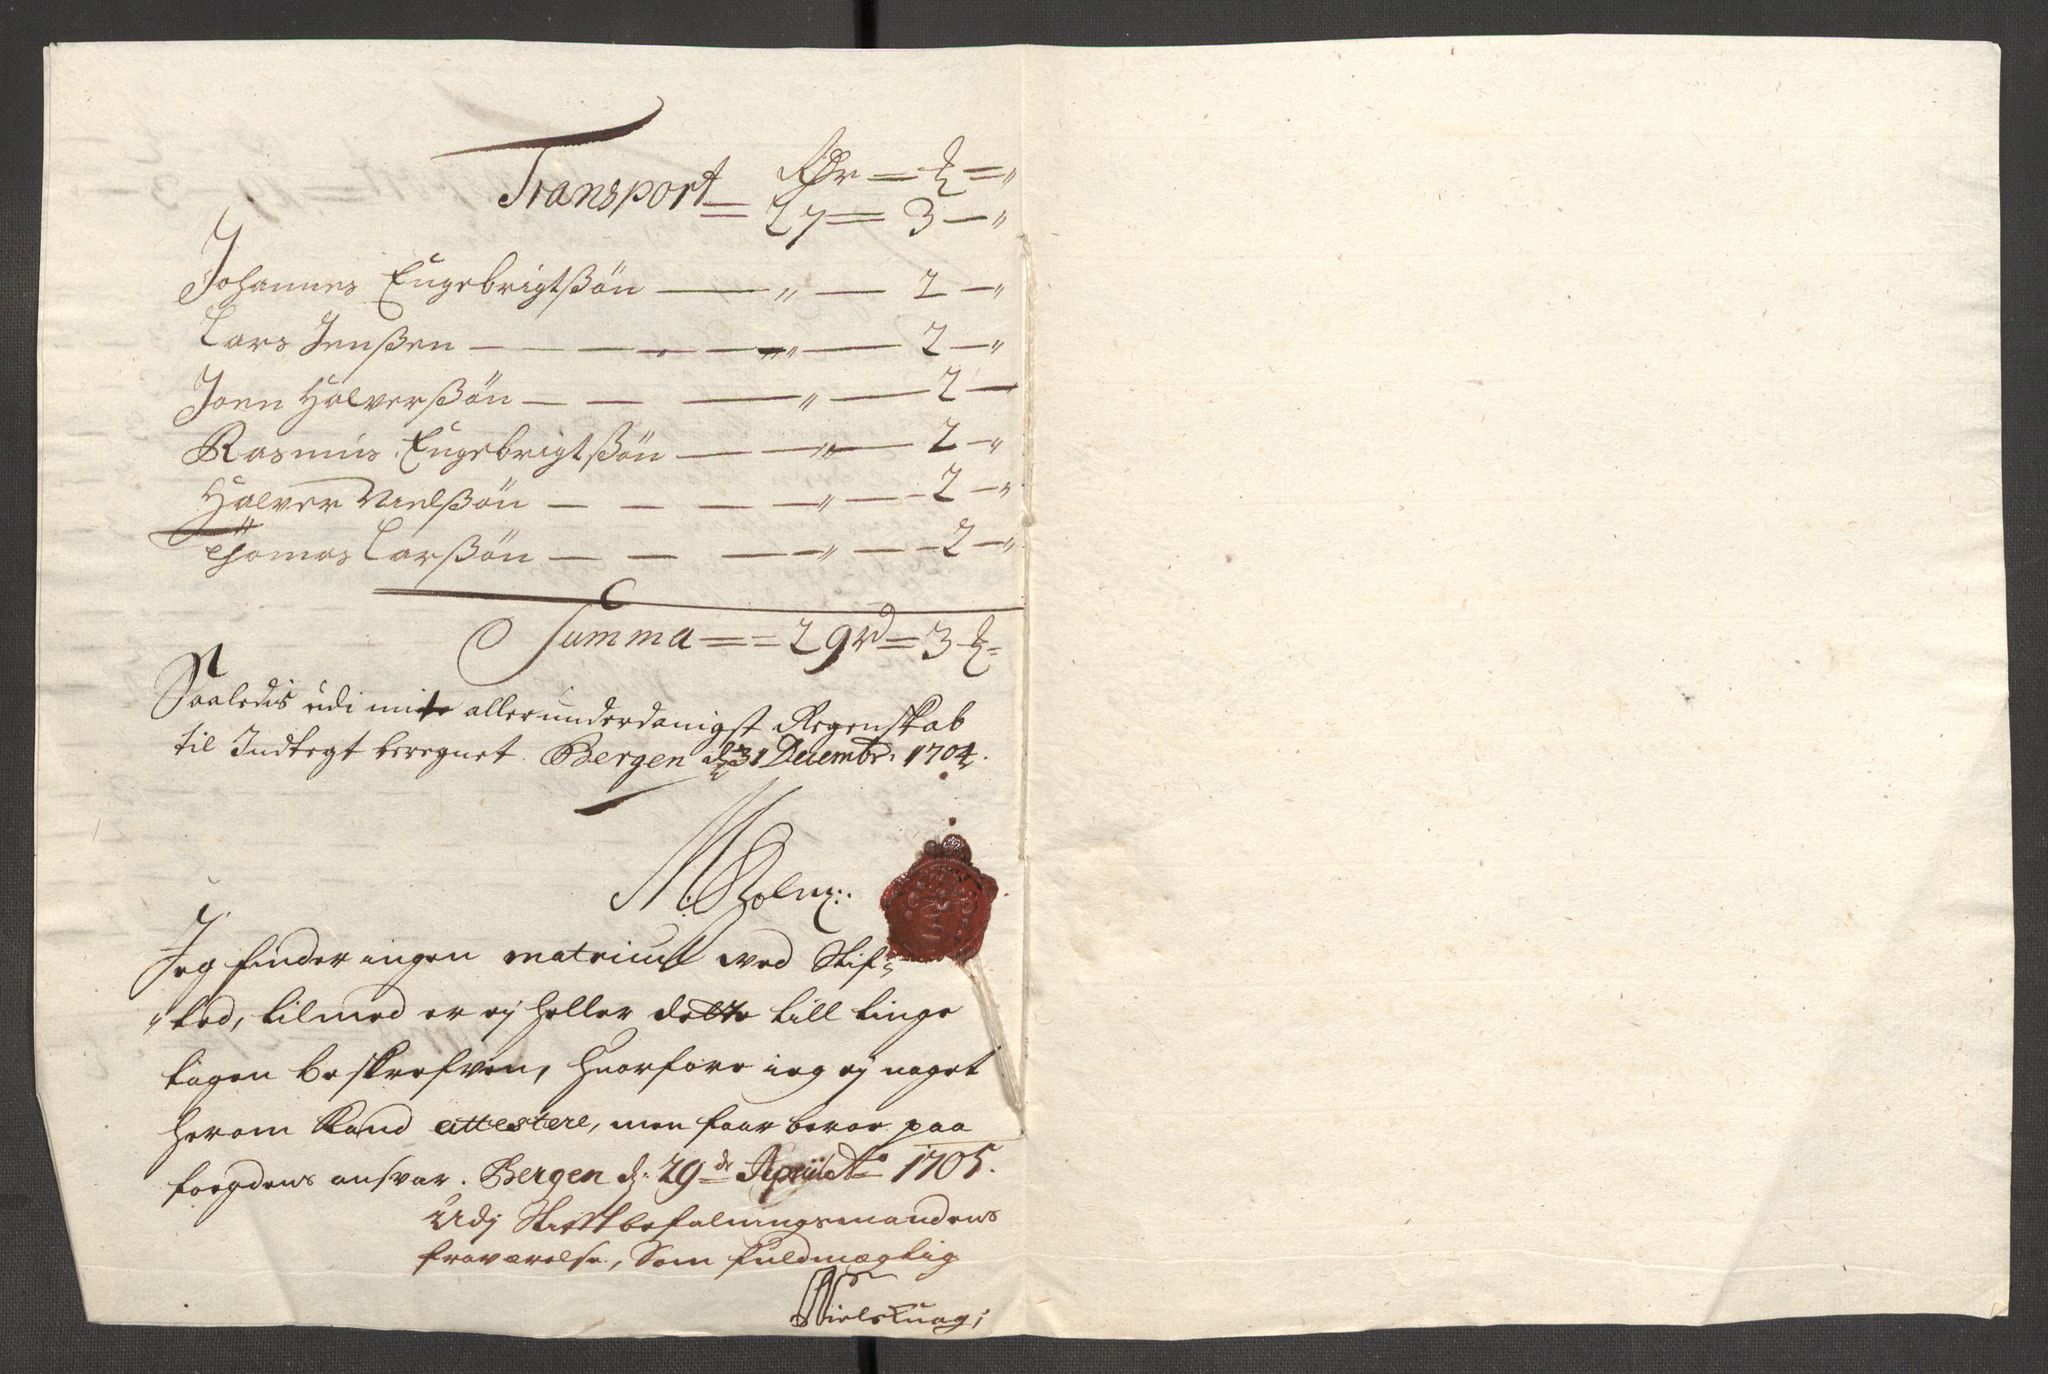 Rdr = ₰ = "
Transport = 27 = 3 — "
Johannes Engebrigtßön — " — 2 — "
Lars Jenßen — " — 2 — "
Joen Halverßön — " — 2 —
Rasmus Engebrigtßön — " — 2 — "
Halver Nielßön — " — 2 — "
Thomas Larßön — " — 2 — "
Summa = = 29 rd = 3 ₰ =
Saaledis udi mit allerunderdanigst Regenskab
til Indtegt beregnet. Bergen d: 31 Decembr: 1704.
M: Holm:.
Jeg finder ingen matricul ved Stif-
"ted, tilmed er ej heller dette till tinge
tagen beskrefven, huorfore ieg ej noget
herom kand attestere, men faar beroe paa
foegdens ansvar. Bergen d: 29de Aprili Ao 1705.
Udj Stiftbefalningsmandens
fraværelse, Som fuldmægtig
Niels Knag;